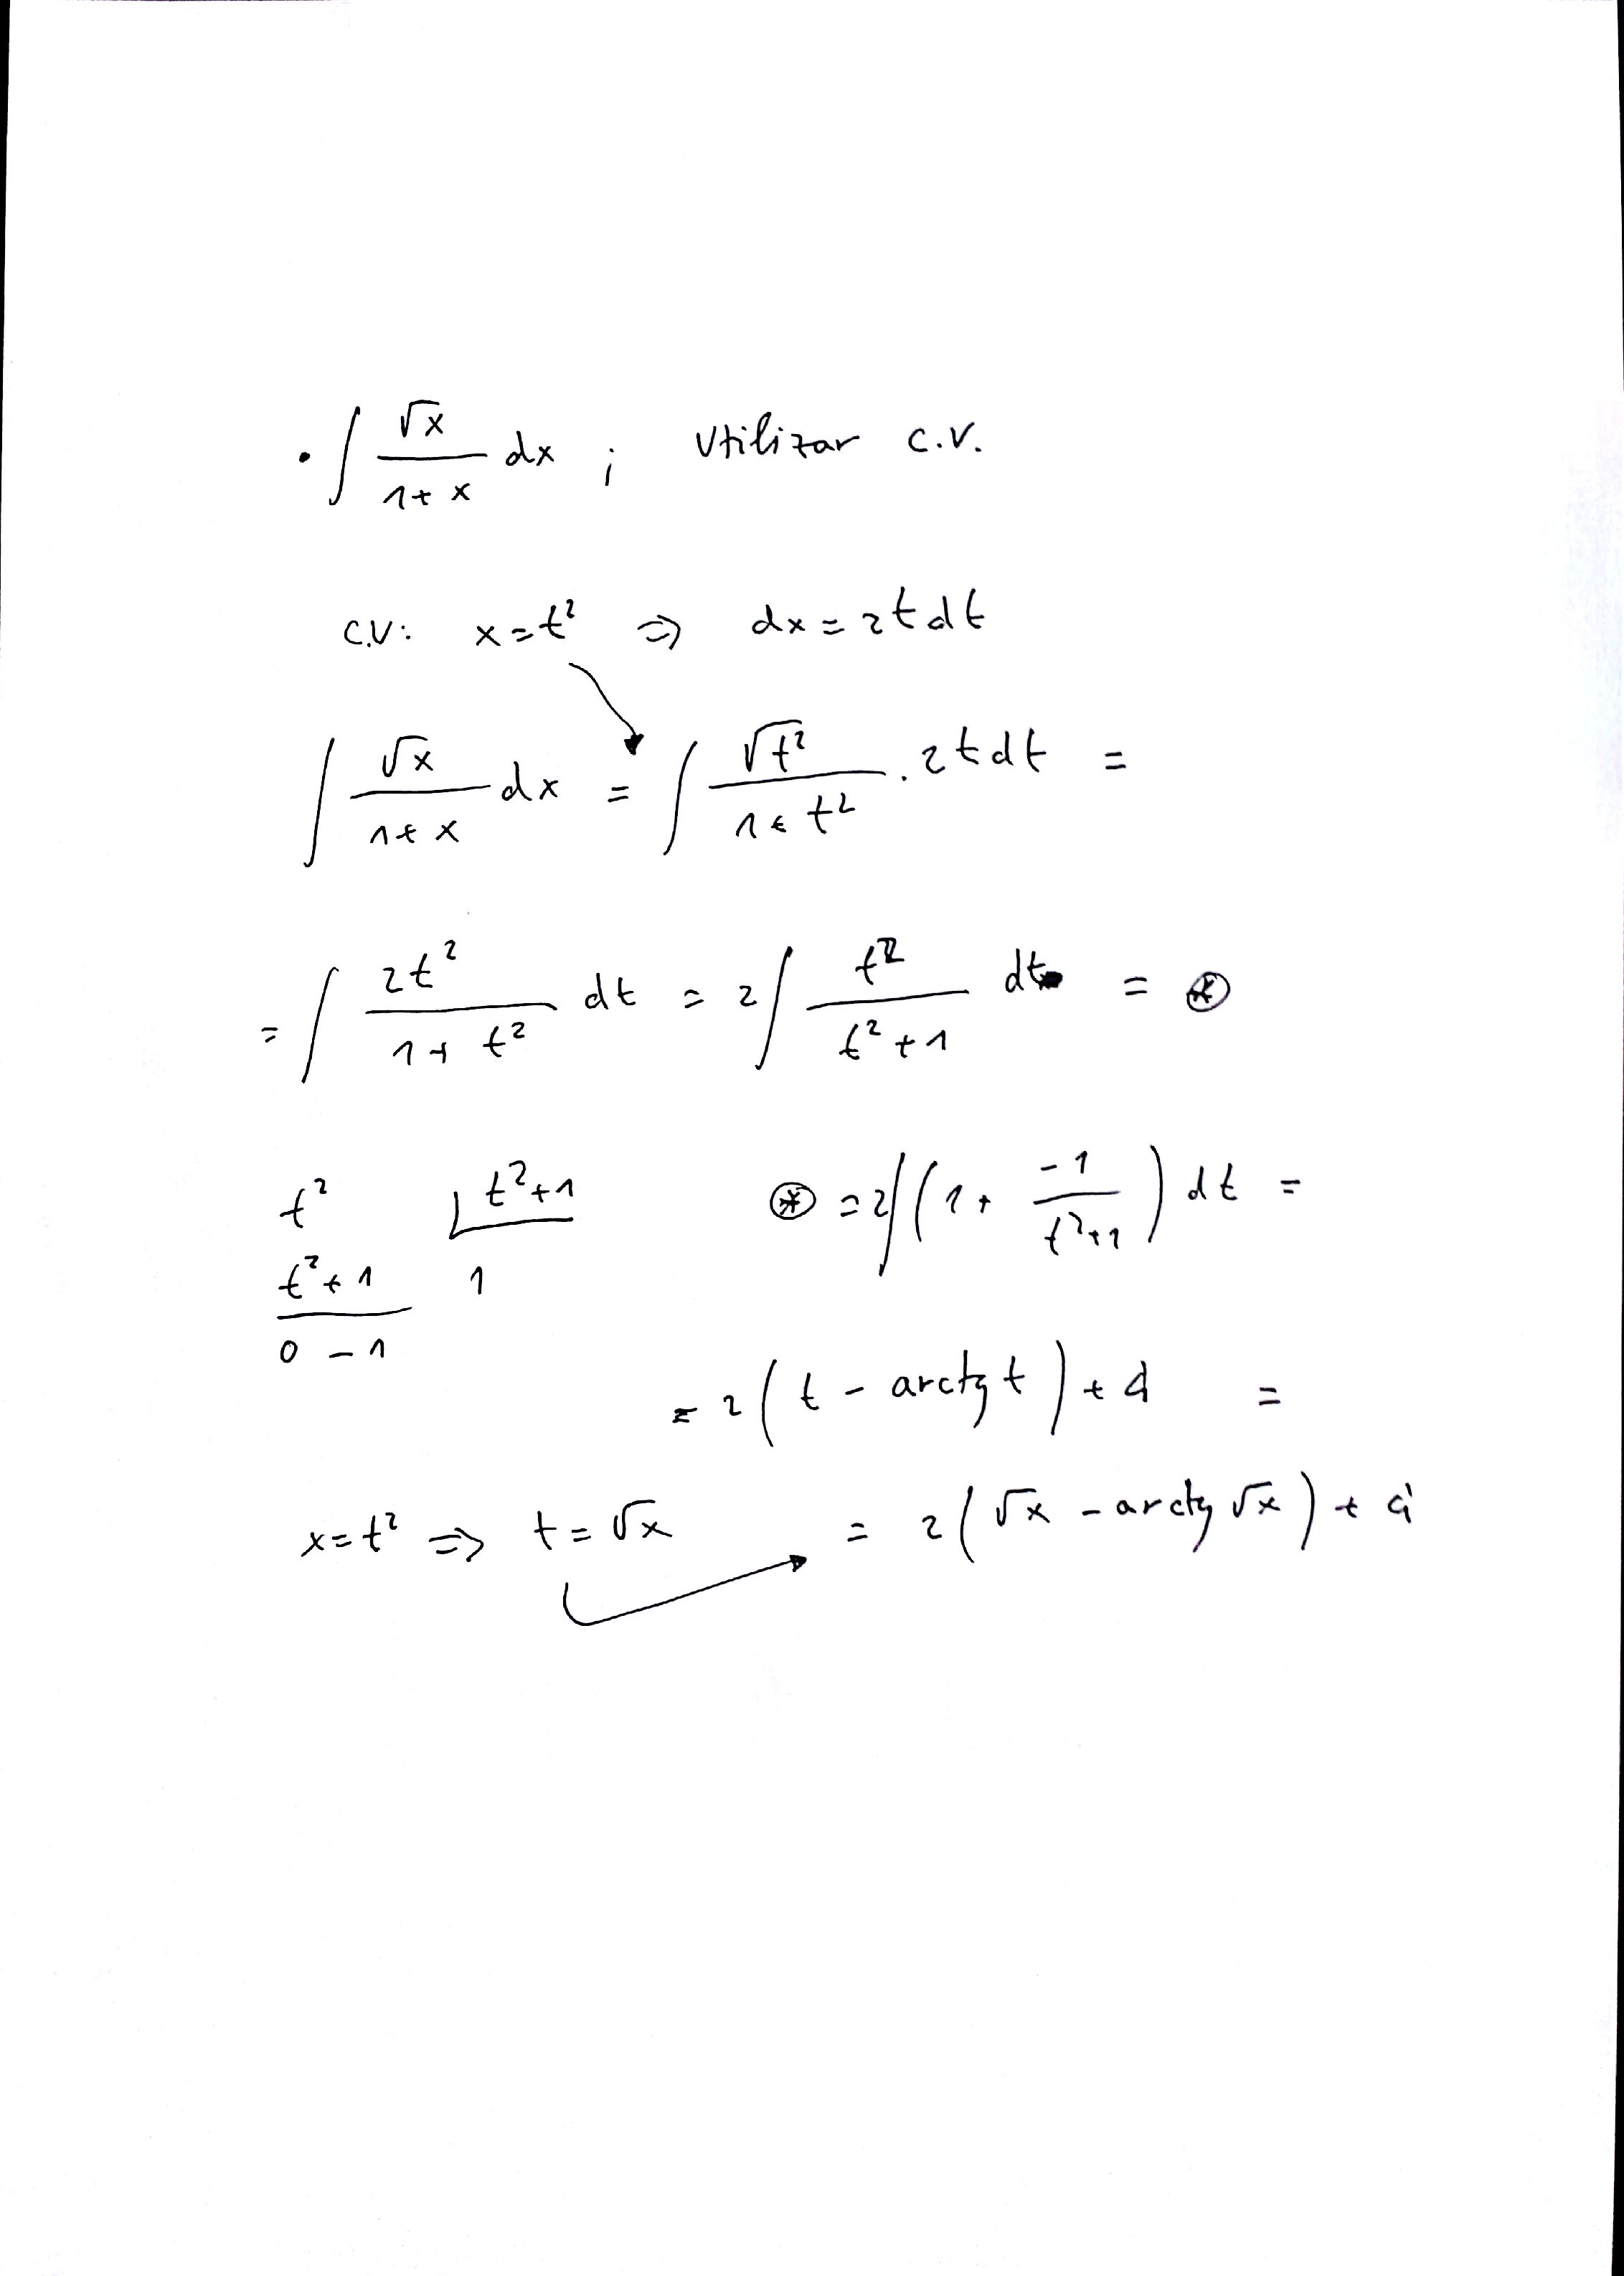 • ∫ √x / (1 + x) dx ; Utilizar C.V.
C.V: x = t² ⇒ dx = 2t dt
∫ √x / (1 + x) dx = ∫ √t² / (1 + t²) · 2t dt =
= ∫ 2t² / (1 + t²) dt = 2 ∫ t² / (t² + 1) dt = ⊛
t² | t² + 1
t² + 1 1
0 - 1
⊛ = 2 ∫ (1 + -1 / (t² + 1)) dt =
= 2 (t - arctg t) +
=
x = t² ⇒ t = √x
= 2 (√x - arctg √x) +